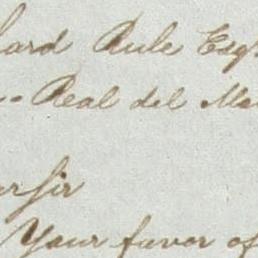 hard Rule Esqr
Real del Mo
ar Sir
Your favor of